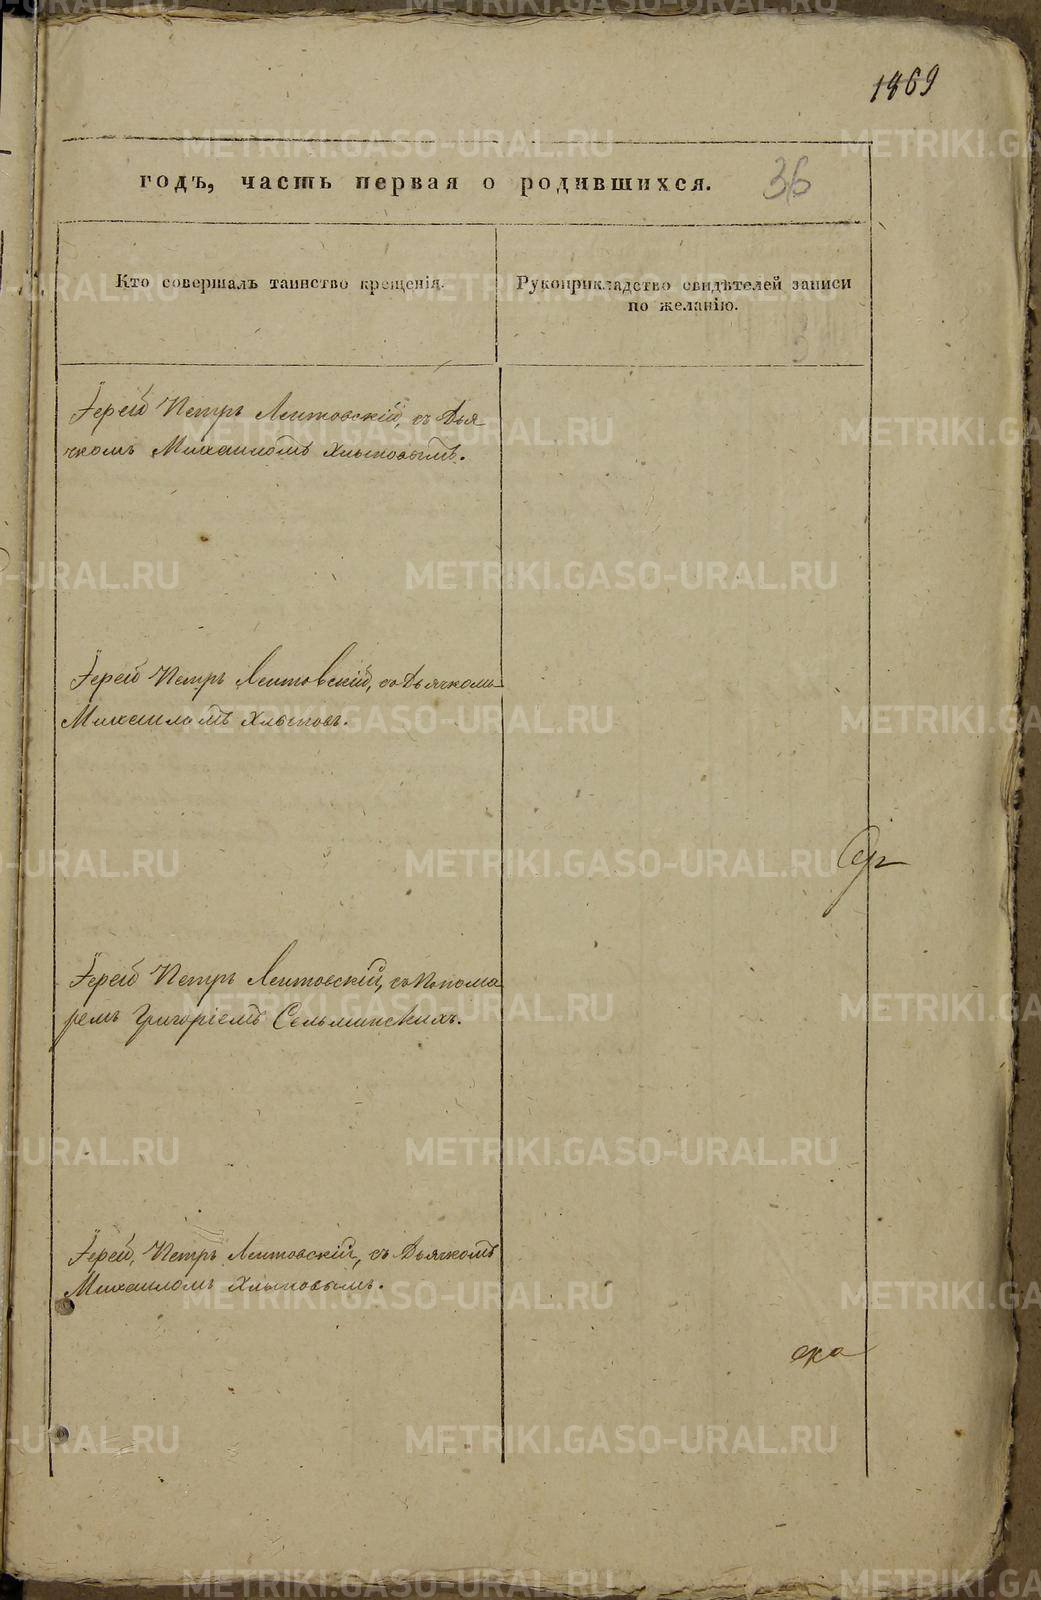 1869
годъ, часть первая о родившихся. 36
Кто совершалъ таинство крещенія.
Рукоприкладство свидѣтелей записи
по желанію.
Іерей Петръ Лептовскій, съ Дья
чкомъ Михаиломъ Хлыновымъ.
Іерей Петръ Лептовскій, съ Дьячкомъ
Михаиломъ Хлынов.
Іерей Петръ Лептовскій, съ Понома
ремъ Григоріемъ Сельминскихъ.
Іерей, Петръ Лептовскій, съ Дьячкомъ
Михаиломъ Хлыновымъ.
ска
METRIKI.GASO-URAL.RU